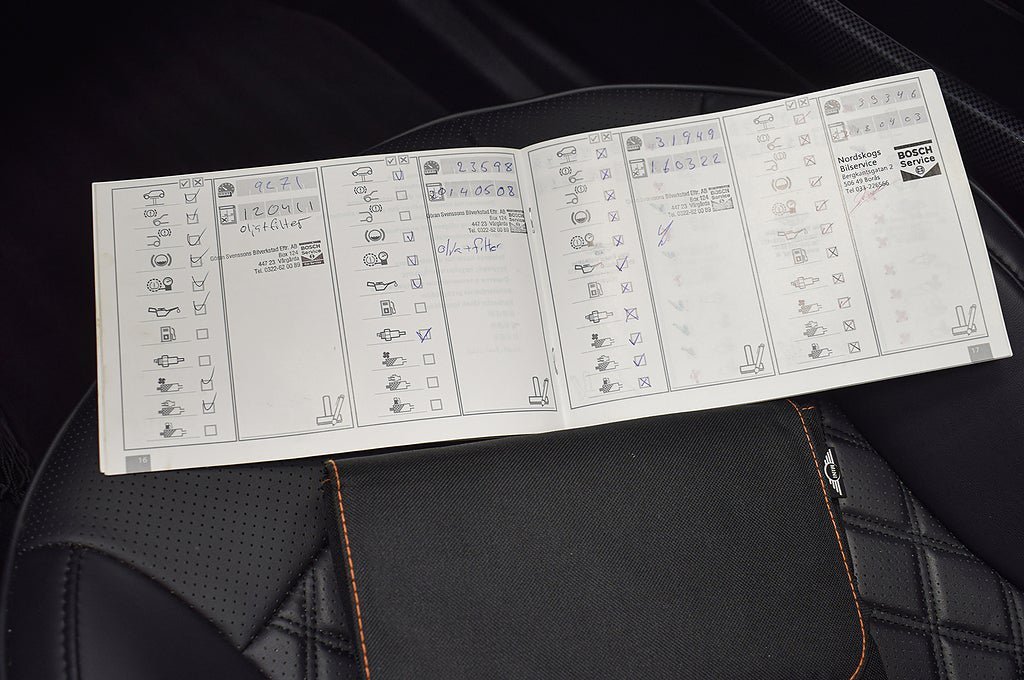 9271
120411
olja+filter
Göran Svenssons Bilverkstad Eftr. AB
Box 124
447 23 Vårgårda
Tel. 0322-62 00 89
BOSCH
Service
16
23598
140508
olja+filter
Göran Svenssons Bilverkstad Eftr. AB
Box 124
447 23 Vårgårda
Tel. 0322-62 00 89
BOSCH
Service
31949
160322
Göran Svenssons Bilverkstad Eftr. AB
Box 124
447 23 Vårgårda
Tel. 0322-62 00 89
BOSCH
Service
39346
180403
Nordskogs
Bilservice
Bergkantsgatan 2
506 49 Borås
Tel 033-226566
BOSCH
Service
17
MINI